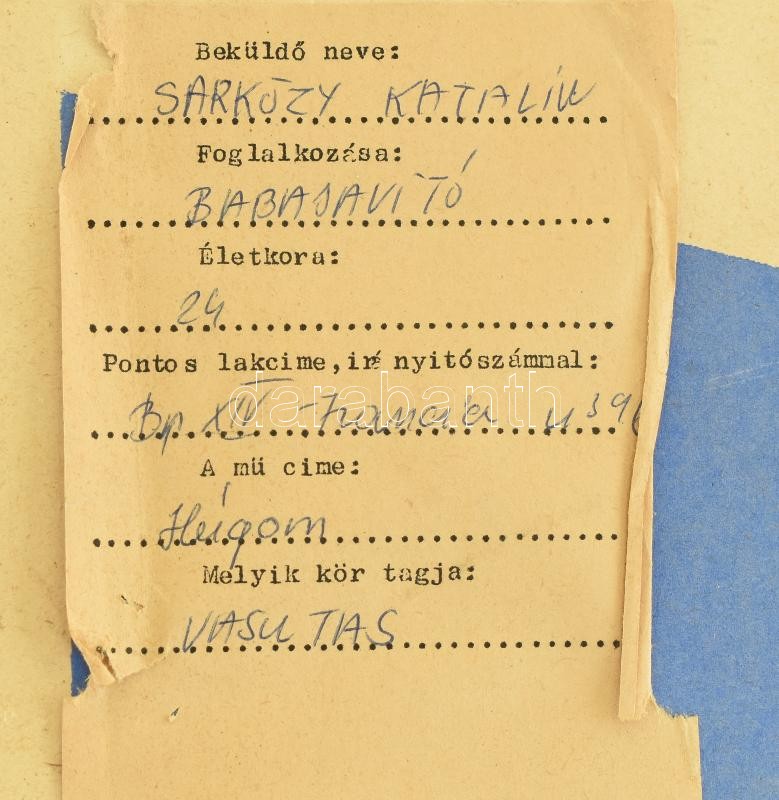 Beküldő neve:
SÁRKÖZY KATALIN
Foglalkozása:
BABAJAVÍTÓ
Életkora:
24
Pontos lakcime, irányitószámmal:
darabanth
Bp XIV Francia u
A mü cime:
Húgom
Melyik kör tagja:
VASUTAS